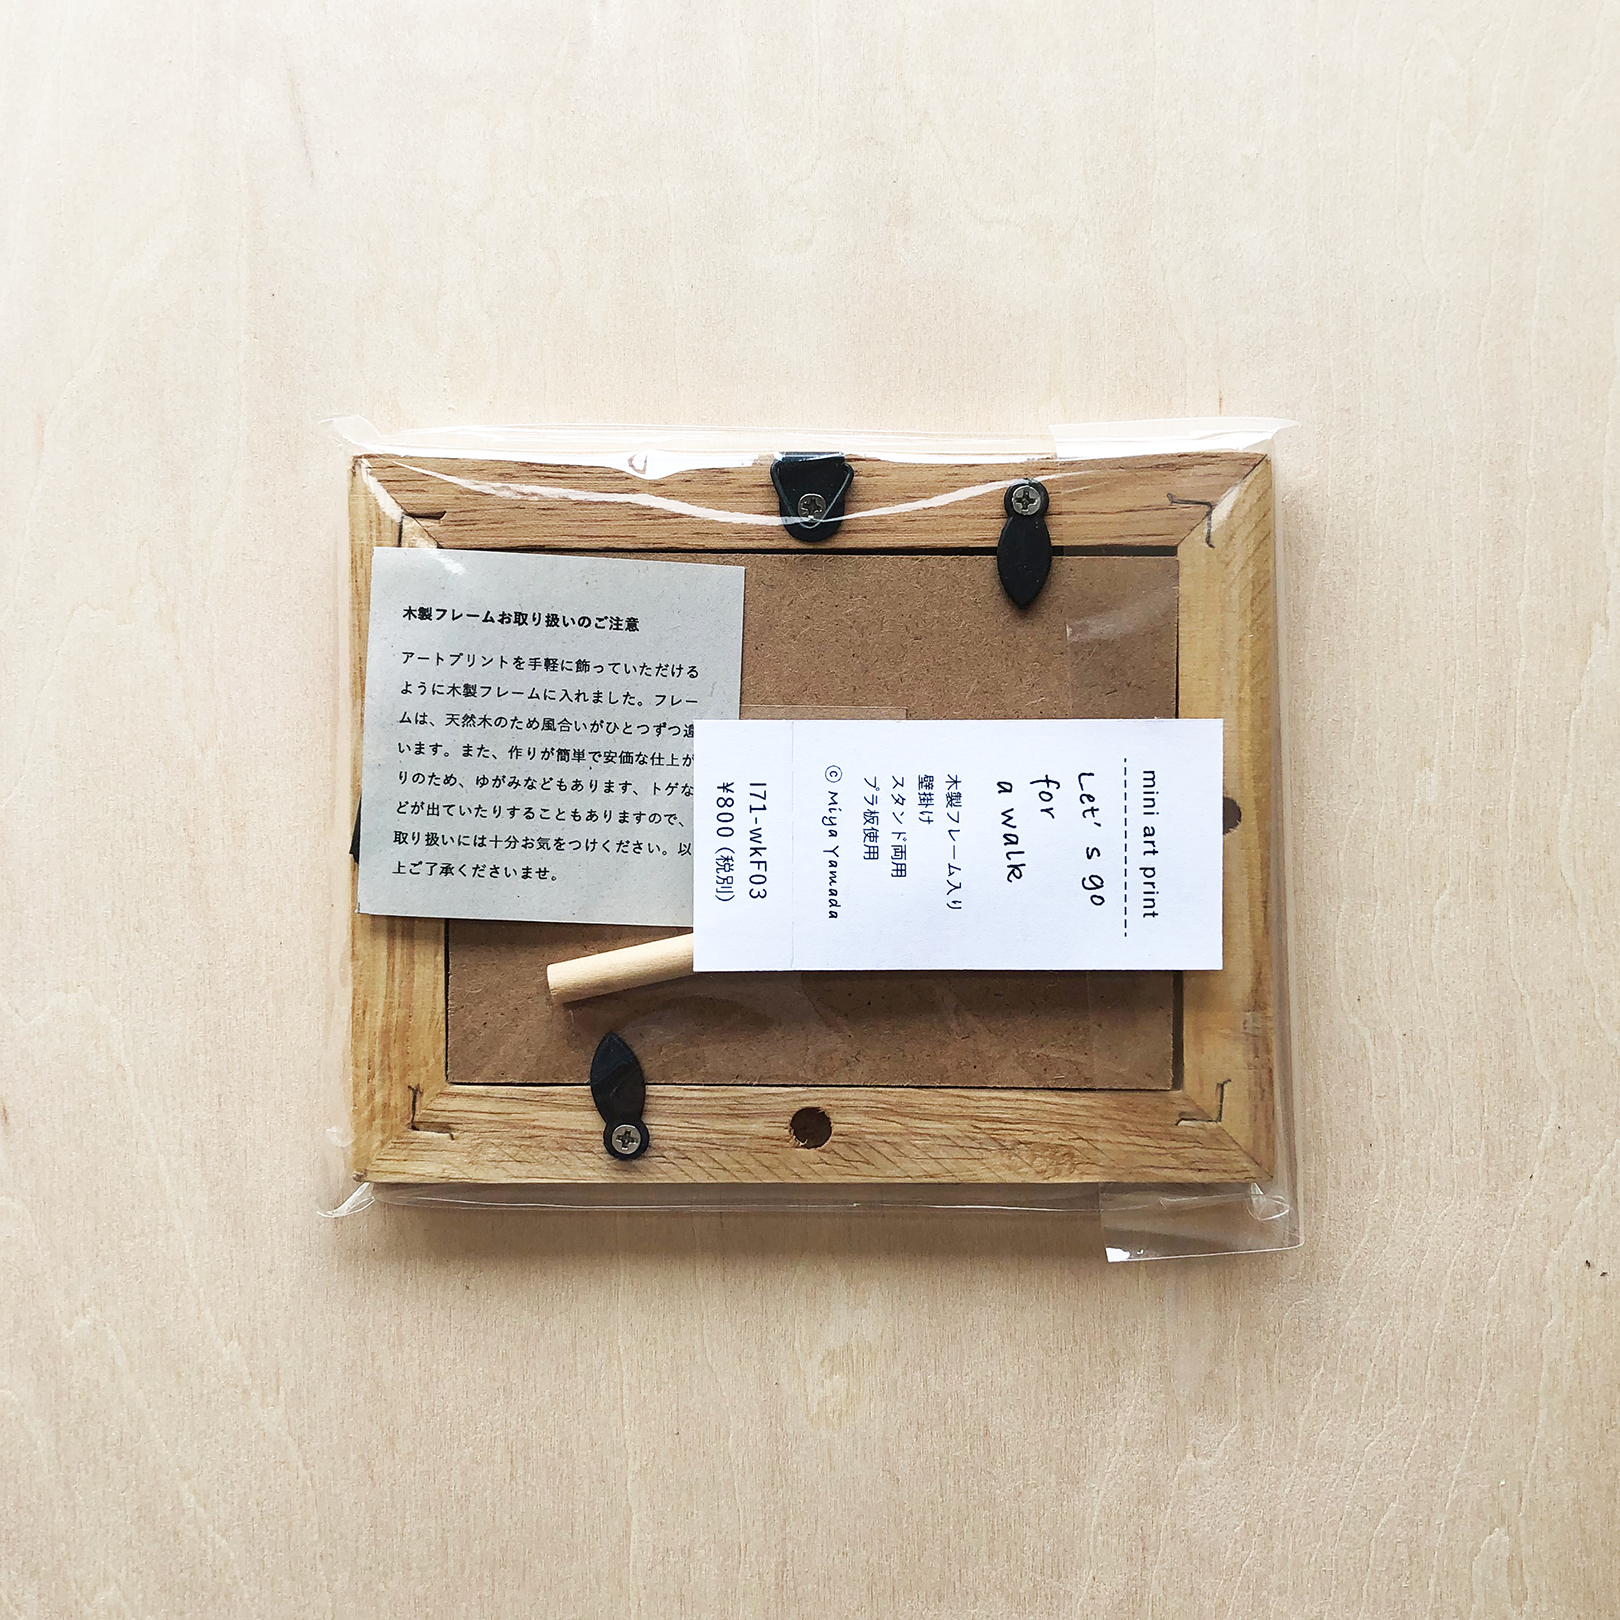 木製フレームお取り扱いのご注意
アートプリントを手軽に飾っていただける
ように木製フレームに入れました。フレー
ムは、天然木のため風合いがひとつずつ違
います。また、作りが簡単で安価な仕上が
りのため、ゆがみなどもあります、トゲな
どが出ていたりすることもありますので、
取り扱いには十分お気をつけください。以
上ご了承くださいませ。
mini art print
Let's go
for
a walk
木製フレーム入り
壁掛け
スタンド両用
プラ板使用
© Miya Yamada
I71-wkF03
¥800（税別）